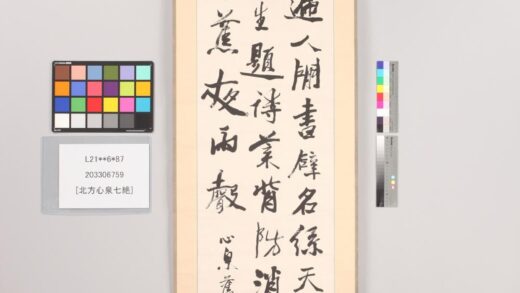 人間書壁名
天
生題詩葉背防消
蕉夜雨聲
心泉
L21**6*87
203306759
[北方心泉七絶]